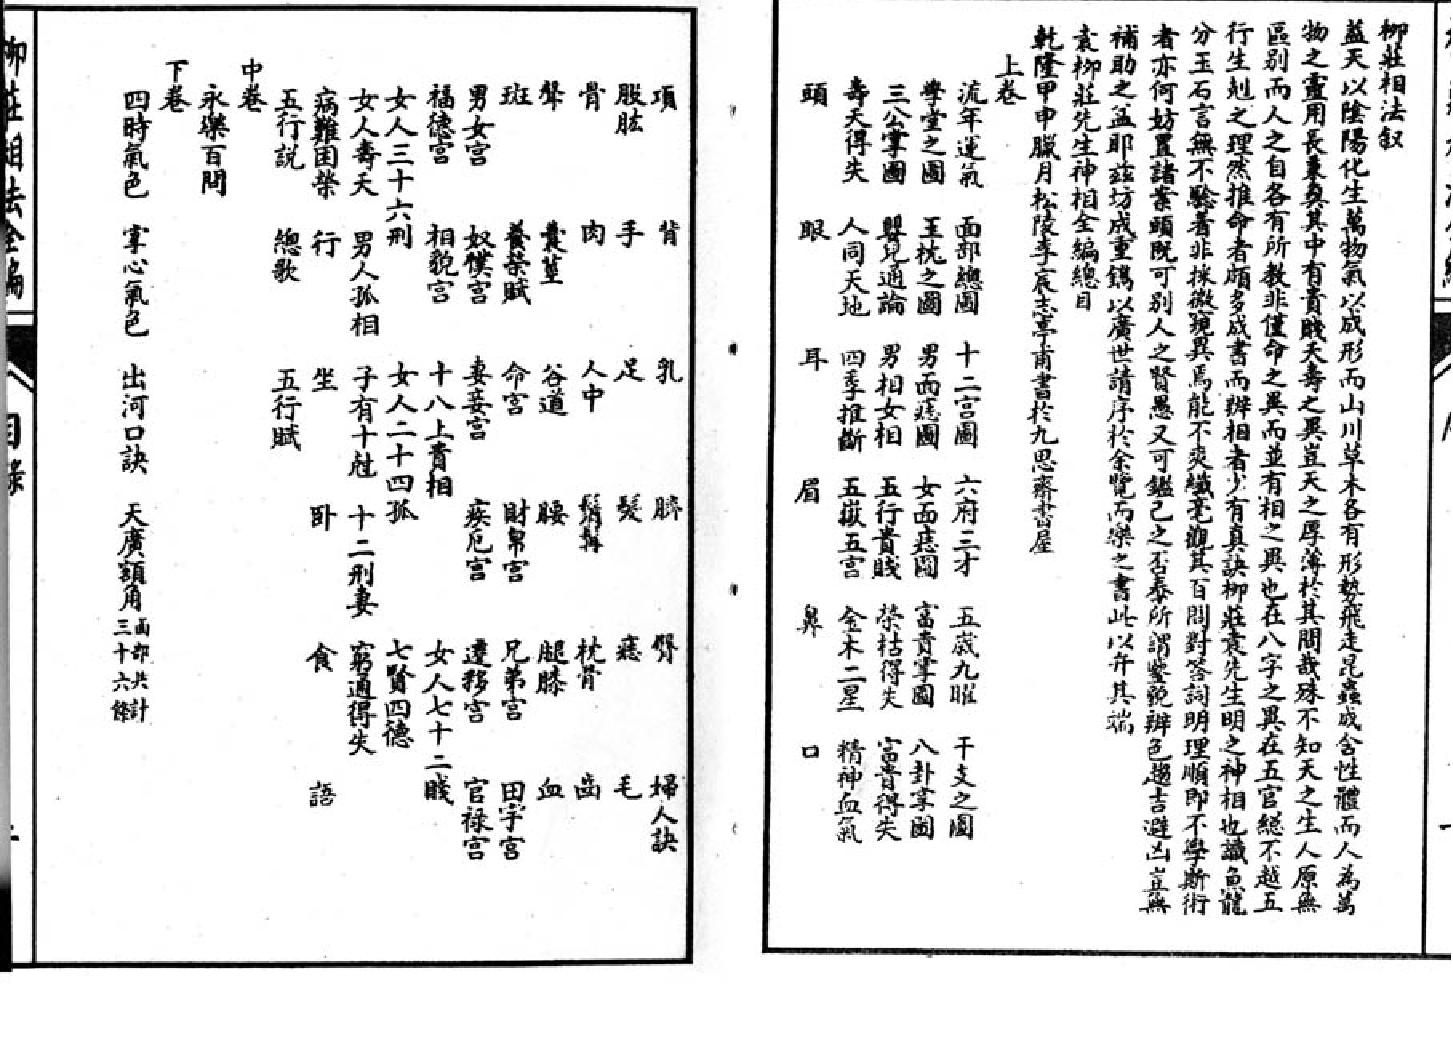 柳莊相法叙
蓋天以陰陽化生萬物氣以成形而山川草木各有形勢飛走昆蟲成含性體而人為萬
物之靈用長稟奧其中有貴賤夭壽之異豈天之厚薄於其間哉殊不知天之生人原無
區別而人之自各有所教非僅命之異而並有相之異也在八字之異在五官總不越五
行生剋之理然推命者頗多成書而辨相者少有真訣柳莊袁先生明之神相也識魚龍
分玉石言無不驗著非採微窺異焉能不爽纖毫觀其百問對答詞明理順即不學斷術
者亦何妨置諸案頭既可別人之賢愚又可鑑己之否泰所謂鑒貌辨色趨吉避凶豈無
補助之益耶茲坊成重鐫以廣世請序於余覽而樂之書此以弁其端
袁柳莊先生神相全編總目
乾隆甲申臘月松陵李宸志亭甫書於九思齋書屋
上卷
流年運氣 面部總圖 十二宮圖 六府三才 五嶽九曜 干支之圖
學堂之圖 玉枕之圖 男面痣圖 女面痣圖 富貴掌圖 八卦掌圖
三公掌圖 嬰兒通論 男相女相 五行貴賤 榮枯得失 富貴得失
壽夭得失 人同天地 四季推斷 五嶽五官 金木二星 精神血氣
頭 眼 耳 眉 鼻 口
項 背 乳 臍 臀 婦人訣
股肱 手 足 髮 痣 毛
骨 肉 人中 鬚髯 枕骨 齒
聲 囊莖 谷道 腰 腿膝 血
斑 養榮賦 命宮 財帛宮 兄弟宮 田宇宮
男女宮 奴僕宮 妻妾宮 疾厄宮 遷移宮 官祿宮
福德宮 相貌宮 十八上貴相 女人七十二賤
女人三十六刑 女人二十四孤 七賢四德
女人壽夭 男人孤相 子有十尅 十二刑妻 窮通得失
病難困榮 行 坐 卧 食 語
五行説 總歌 五行賦
中卷
永樂百問
下卷
四時氣色 掌心氣色 出河口訣 天廣額角 面部共計三十六條
柳莊相法全編
目錄